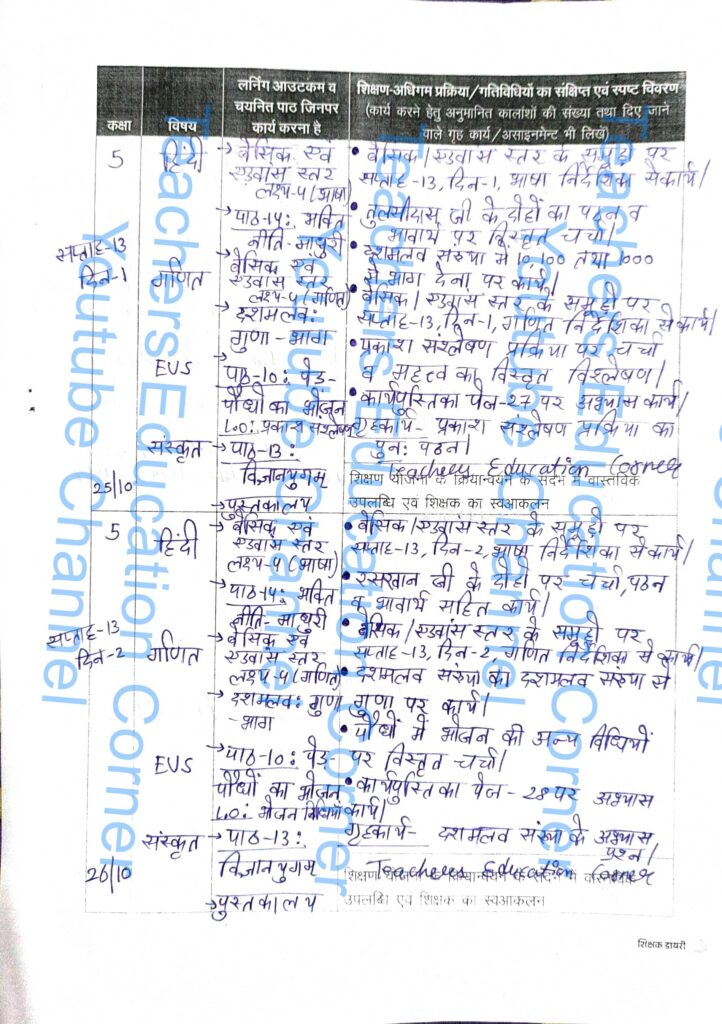 कक्षा
विषय
लर्निंग आउटकम व
चयनित पाठ जिनपर
कार्य करना है
शिक्षण-अधिगम प्रक्रिया/गतिविधियों का संक्षिप्त एवं स्पष्ट विवरण
(कार्य करने हेतु अनुमानित कालांशों की संख्या तथा दिए जाने
वाले गृह कार्य/असाइनमेंट भी लिखें)
सप्ताह-13
दिन-1
25/10
5
हिंदी
गणित
EUS
संस्कृत
→ बेसिक एवं
एडवांस स्तर
लक्ष्य-4 (भाषा)
→ पाठ-14: भक्ति
नीति-माधुरी
→ बेसिक एवं
एडवांस स्तर
लक्ष्य-4 (गणित)
→ दशमलव:
गुणा-भाग
पाठ-10: पेड़-
पौधों का भोजन
L.O: प्रकाश संश्लेषण
→ पाठ-13:
विज्ञानयुगम्
→ पुस्तकालय
• बेसिक/एडवांस स्तर के समूहों पर
सप्ताह-13, दिन-1, भाषा निर्देशिका से कार्य।
• तुलसीदास जी के दोहों का पठन व
भावार्थ पर विस्तृत चर्चा।
• दशमलव संख्या में 10, 100 तथा 1000
से भाग देना पर कार्य।
• बेसिक/एडवांस स्तर के समूहों पर
सप्ताह-13, दिन-1, गणित निर्देशिका से कार्य।
• प्रकाश संश्लेषण प्रक्रिया पर चर्चा
व महत्त्व का विस्तृत विश्लेषण।
• कार्यपुस्तिका पेज-27 पर अभ्यास कार्य।
गृहकार्य- प्रकाश संश्लेषण प्रक्रिया का
पुनः पठन।
Teachers Education Corner
शिक्षण योजना के क्रियान्वयन के संदर्भ में वास्तविक
उपलब्धि एवं शिक्षक का स्वआकलन
सप्ताह-13
दिन-2
26/10
5
हिंदी
गणित
EUS
संस्कृत
→ बेसिक एवं
एडवांस स्तर
लक्ष्य-4 (भाषा)
→ पाठ-14: भक्ति
नीति-माधुरी
→ बेसिक एवं
एडवांस स्तर
लक्ष्य-4 (गणित)
→ दशमलव: गुणा
-भाग
→ पाठ-10: पेड़-
पौधों का भोजन
L.O: भोजन विधियाँ
→ पाठ-13:
विज्ञानयुगम्
→ पुस्तकालय
• बेसिक/एडवांस स्तर के समूहों पर
सप्ताह-13, दिन-2, भाषा निर्देशिका से कार्य।
• रसखान जी के दोहों पर चर्चा, पठन
व भावार्थ सहित कार्य।
• बेसिक/एडवांस स्तर के समूहों पर
सप्ताह-13, दिन-2, गणित निर्देशिका से कार्य।
• दशमलव संख्या का दशमलव संख्या से
गुणा पर कार्य।
• पौधों में भोजन की अन्य विधियों
पर विस्तृत चर्चा।
• कार्यपुस्तिका पेज-28 पर अभ्यास
कार्य।
गृहकार्य- दशमलव संख्या के अभ्यास
प्रश्न।
Teachers Education Corner
शिक्षण योजना के क्रियान्वयन के संदर्भ में वास्तविक
उपलब्धि एवं शिक्षक का स्वआकलन
शिक्षक डायरी
Teachers Education Corner
Youtube Channel
Teachers Education Corner
Youtube Channel
Teachers Education Corner